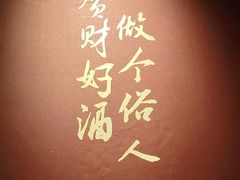 做个俗人
贪财好酒